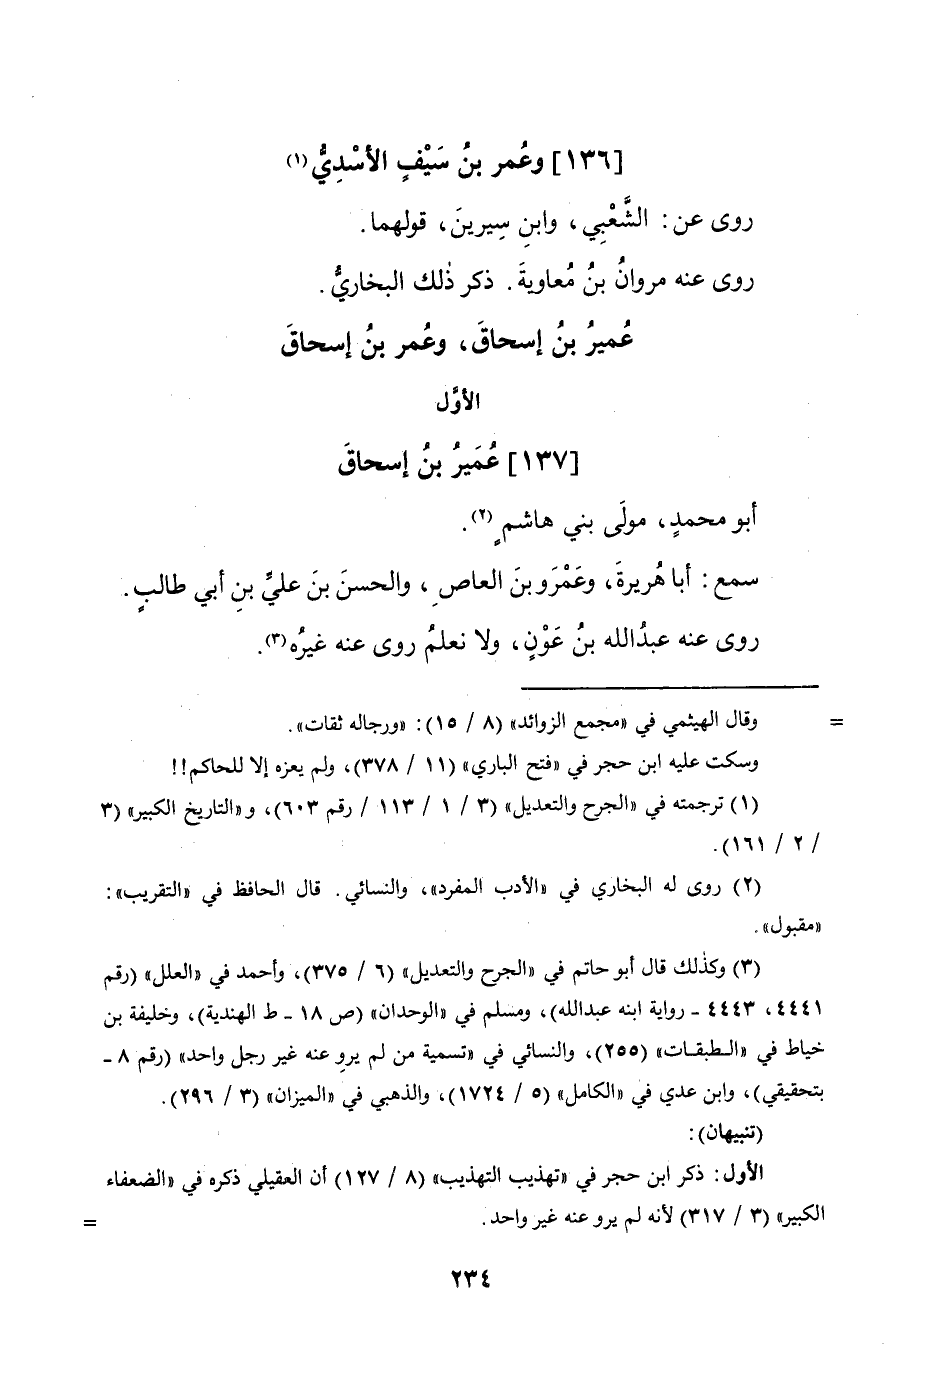 [١٣٦] وعُمر بنُ سَيْفٍ الأسْدِيُّ(١)
روى عن: الشَّعْبِي، وابنِ سِيرينَ، قولهما.
روى عنه مروانُ بنُ مُعاويةَ. ذكر ذٰلك البخاريُّ.
عُميرُ بنُ إسحاقَ، وعُمر بنُ إسحاقَ
الأوَّل
[١٣٧] عُمَيرُ بنُ إسحاقَ
أبو محمدٍ، مولَى بني هاشمٍ(٢).
سمع: أبا هُريرةَ، وعَمْرَو بنَ العاصِ، والحسنَ بنَ عليِّ بنِ أبي طالبٍ.
روى عنه عبدُالله بنُ عَوْنٍ، ولا نعلمُ روى عنه غيرُه(٣).
= وقال الهيثمي في «مجمع الزوائد» (٨ / ١٥): «ورجاله ثقات».
وسكت عليه ابن حجر في «فتح الباري» (١١ / ٣٧٨)، ولم يعزه إلا للحاكم!!
(١) ترجمته في «الجرح والتعديل» (٣ / ١ / ١١٣ / رقم ٦٠٣)، و«التاريخ الكبير» (٣
/ ٢ / ١٦١).
(٢) روى له البخاري في «الأدب المفرد»، والنسائي. قال الحافظ في «التقريب»:
«مقبول».
(٣) وكذٰلك قال أبو حاتم في «الجرح والتعديل» (٦ / ٣٧٥)، وأحمد في «العلل» (رقم
٤٤٤١، ٤٤٤٣ ـ رواية ابنه عبدالله)، ومسلم في «الوحدان» (ص ١٨ ـ ط الهندية)، وخليفة بن
خياط في «الطبقات» (٢٥٥)، والنسائي في «تسمية من لم يروِ عنه غير رجل واحد» (رقم ٨ ـ
بتحقيقي)، وابن عدي في «الكامل» (٥ / ١٧٢٤)، والذهبي في «الميزان» (٣ / ٢٩٦).
(تنبيهان):
الأول: ذكر ابن حجر في «تهذيب التهذيب» (٨ / ١٢٧) أن العقيلي ذكره في «الضعفاء
الكبير» (٣ / ٣١٧) لأنه لم يرو عنه غير واحد. =
٢٣٤